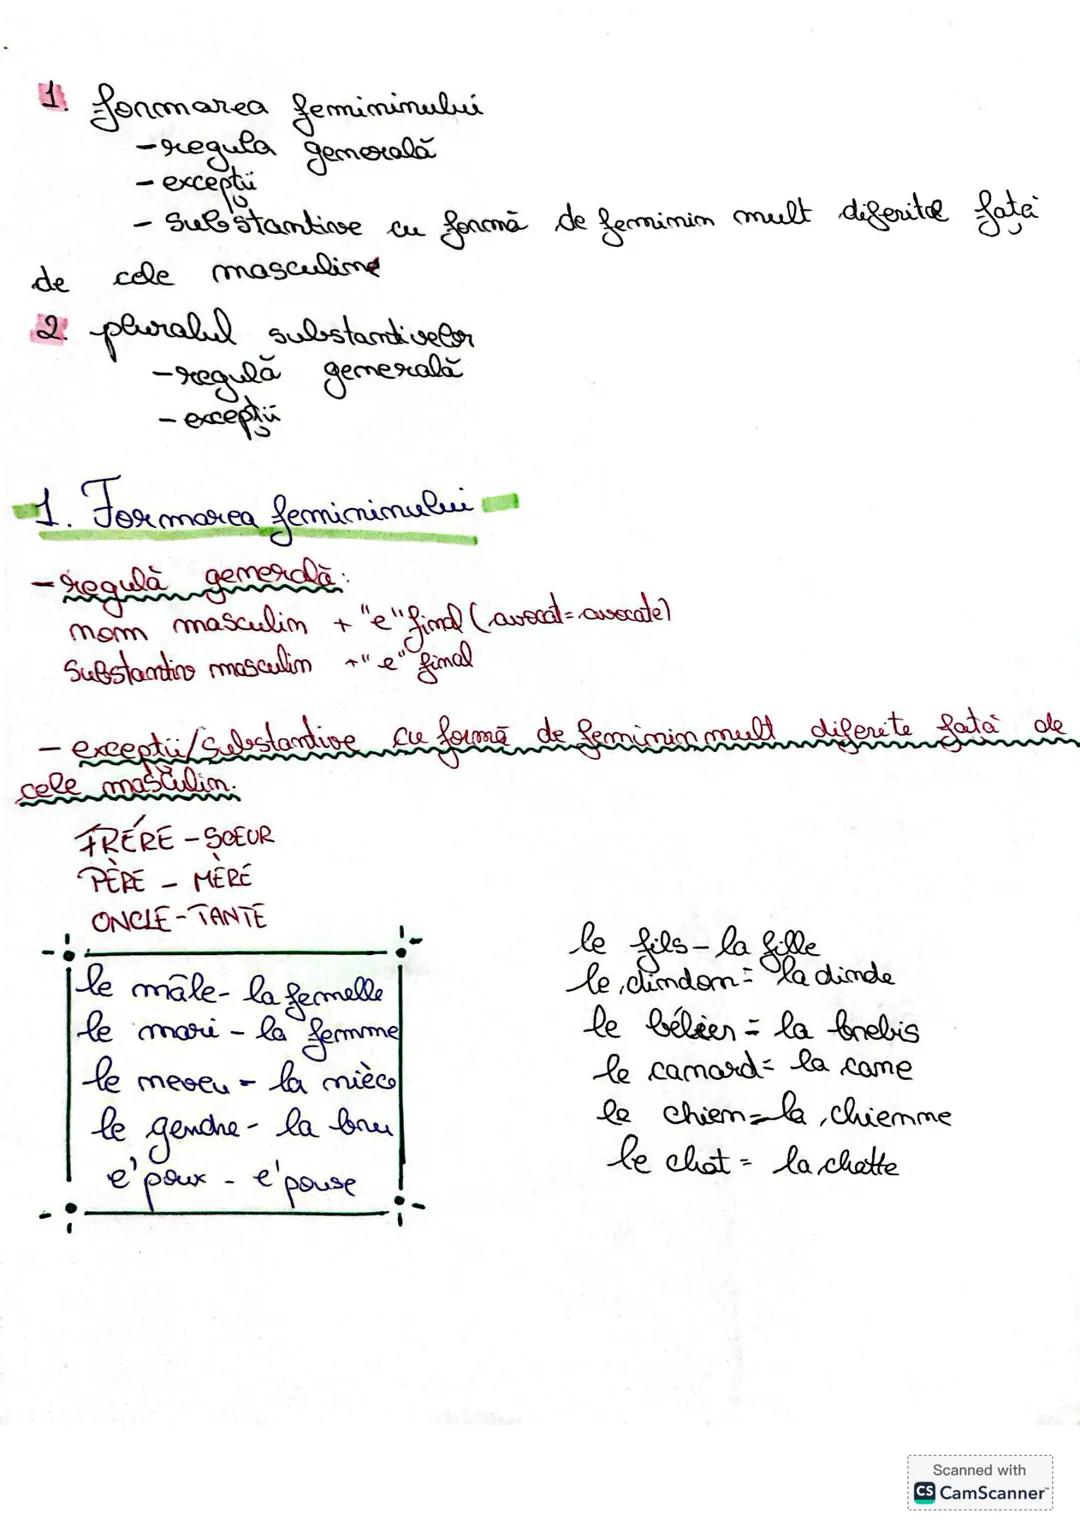 1. formarea femininului
- regula generală
- excepții
- substantive cu formă de feminin mult diferite față
de cele masculine
2. pluralul substantivelor
- regulă generală
- excepții
1. Formarea femininului
- regulă generală:
nom masculin + "e" final (avocat = avocate)
Substantiv masculin + "e" final
- excepții/substantive cu formă de feminin mult diferite față de
cele masculin.
FRÉRE - SOEUR
PÈRE - MÈRE
ONCLE - TANTE
le mâle - la femelle
le mari - la femme
le neveu - la nièce
le gendre - la bru
époux - épouse
le fils - la fille
le dindon = la dinde
le bélier = la brebis
le canard = la cane
le chien = la chienne
le chat = la chatte
Scanned with
CS CamScanner